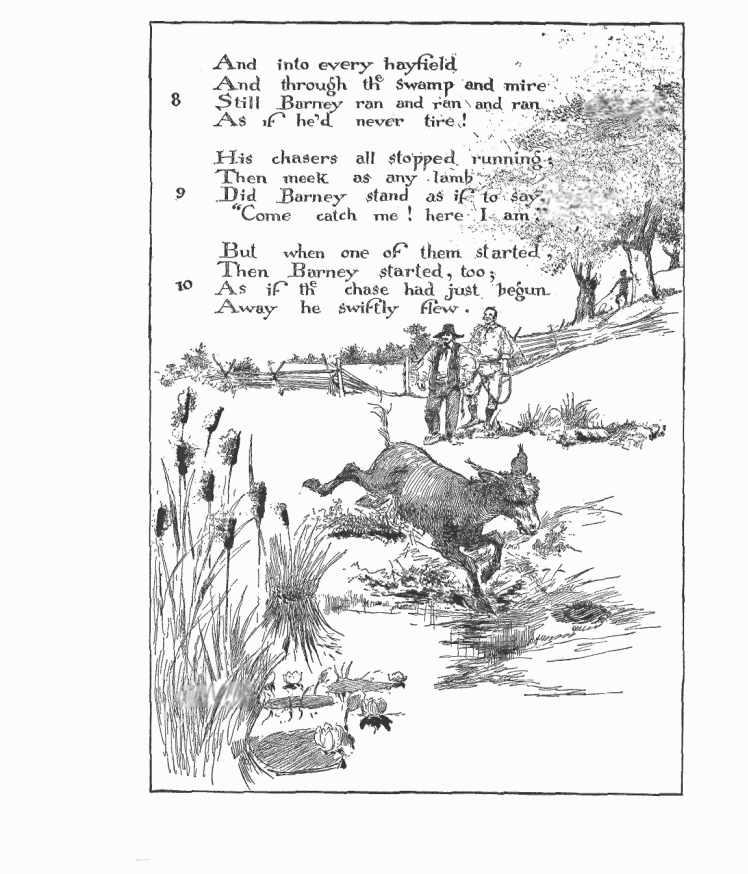 And into every hayfield
And through the swamp and mire
8 Still Barney ran and ran and ran
As if he'd never tire!
His chasers all stopped running;
Then meek as any lamb
9 Did Barney stand as if to say,
"Come catch me! here I am;
But when one of them started,
Then Barney started, too;
10 As if the chase had just begun
Away he swiftly flew.